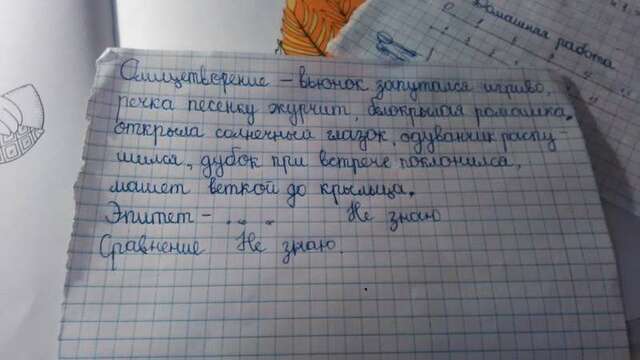 Домашняя работа
Олицетворение – вьюнок запутался игриво,
речка песенку журчит, белокрылая ромашка
открыла солнечный глазок, одуванчик распу-
шился, дубок при встрече поклонился,
машет веткой до крыльца.
Эпитет – . . . . Не знаю
Сравнение Не знаю.